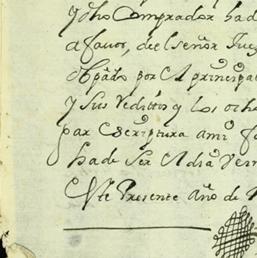 y dho Comprador ha d
a favor, del señor Jue
por el principa
y sus Reditos y los ocho
par Escriptura ami fa
ha de ser el dia Vein
este Presente año de